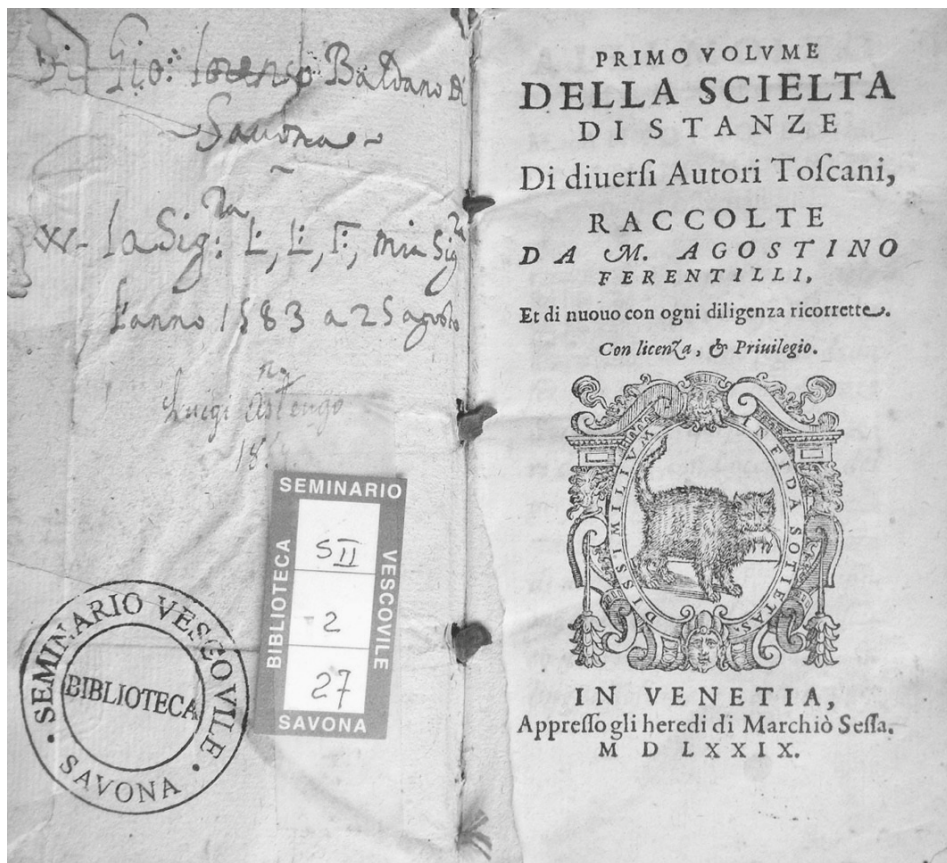 Di Gio: Lorenso Baldano di
Savona
la Sig:ra L, L, T, mia Sigra
l'anno 1583 a 25 agosto
Luigi Astengo
18
SEMINARIO
BIBLIOTECA
VESCOVILE
SAVONA
SII
2
27
SEMINARIO VESCOVILE
BIBLIOTECA
SAVONA
PRIMO VOLVME
DELLA SCIELTA
DI STANZE
Di diuerſi Autori Toſcani,
RACCOLTE
DA M. AGOSTINO
FERENTILLI,
Et di nuouo con ogni diligenza ricorrette.
Con licenza, & Priuilegio.
DISSIMILIVM INFIDA SOTIETAS.
IN VENETIA,
Appreſſo gli heredi di Marchiò Seſſa.
M D LXXIX.